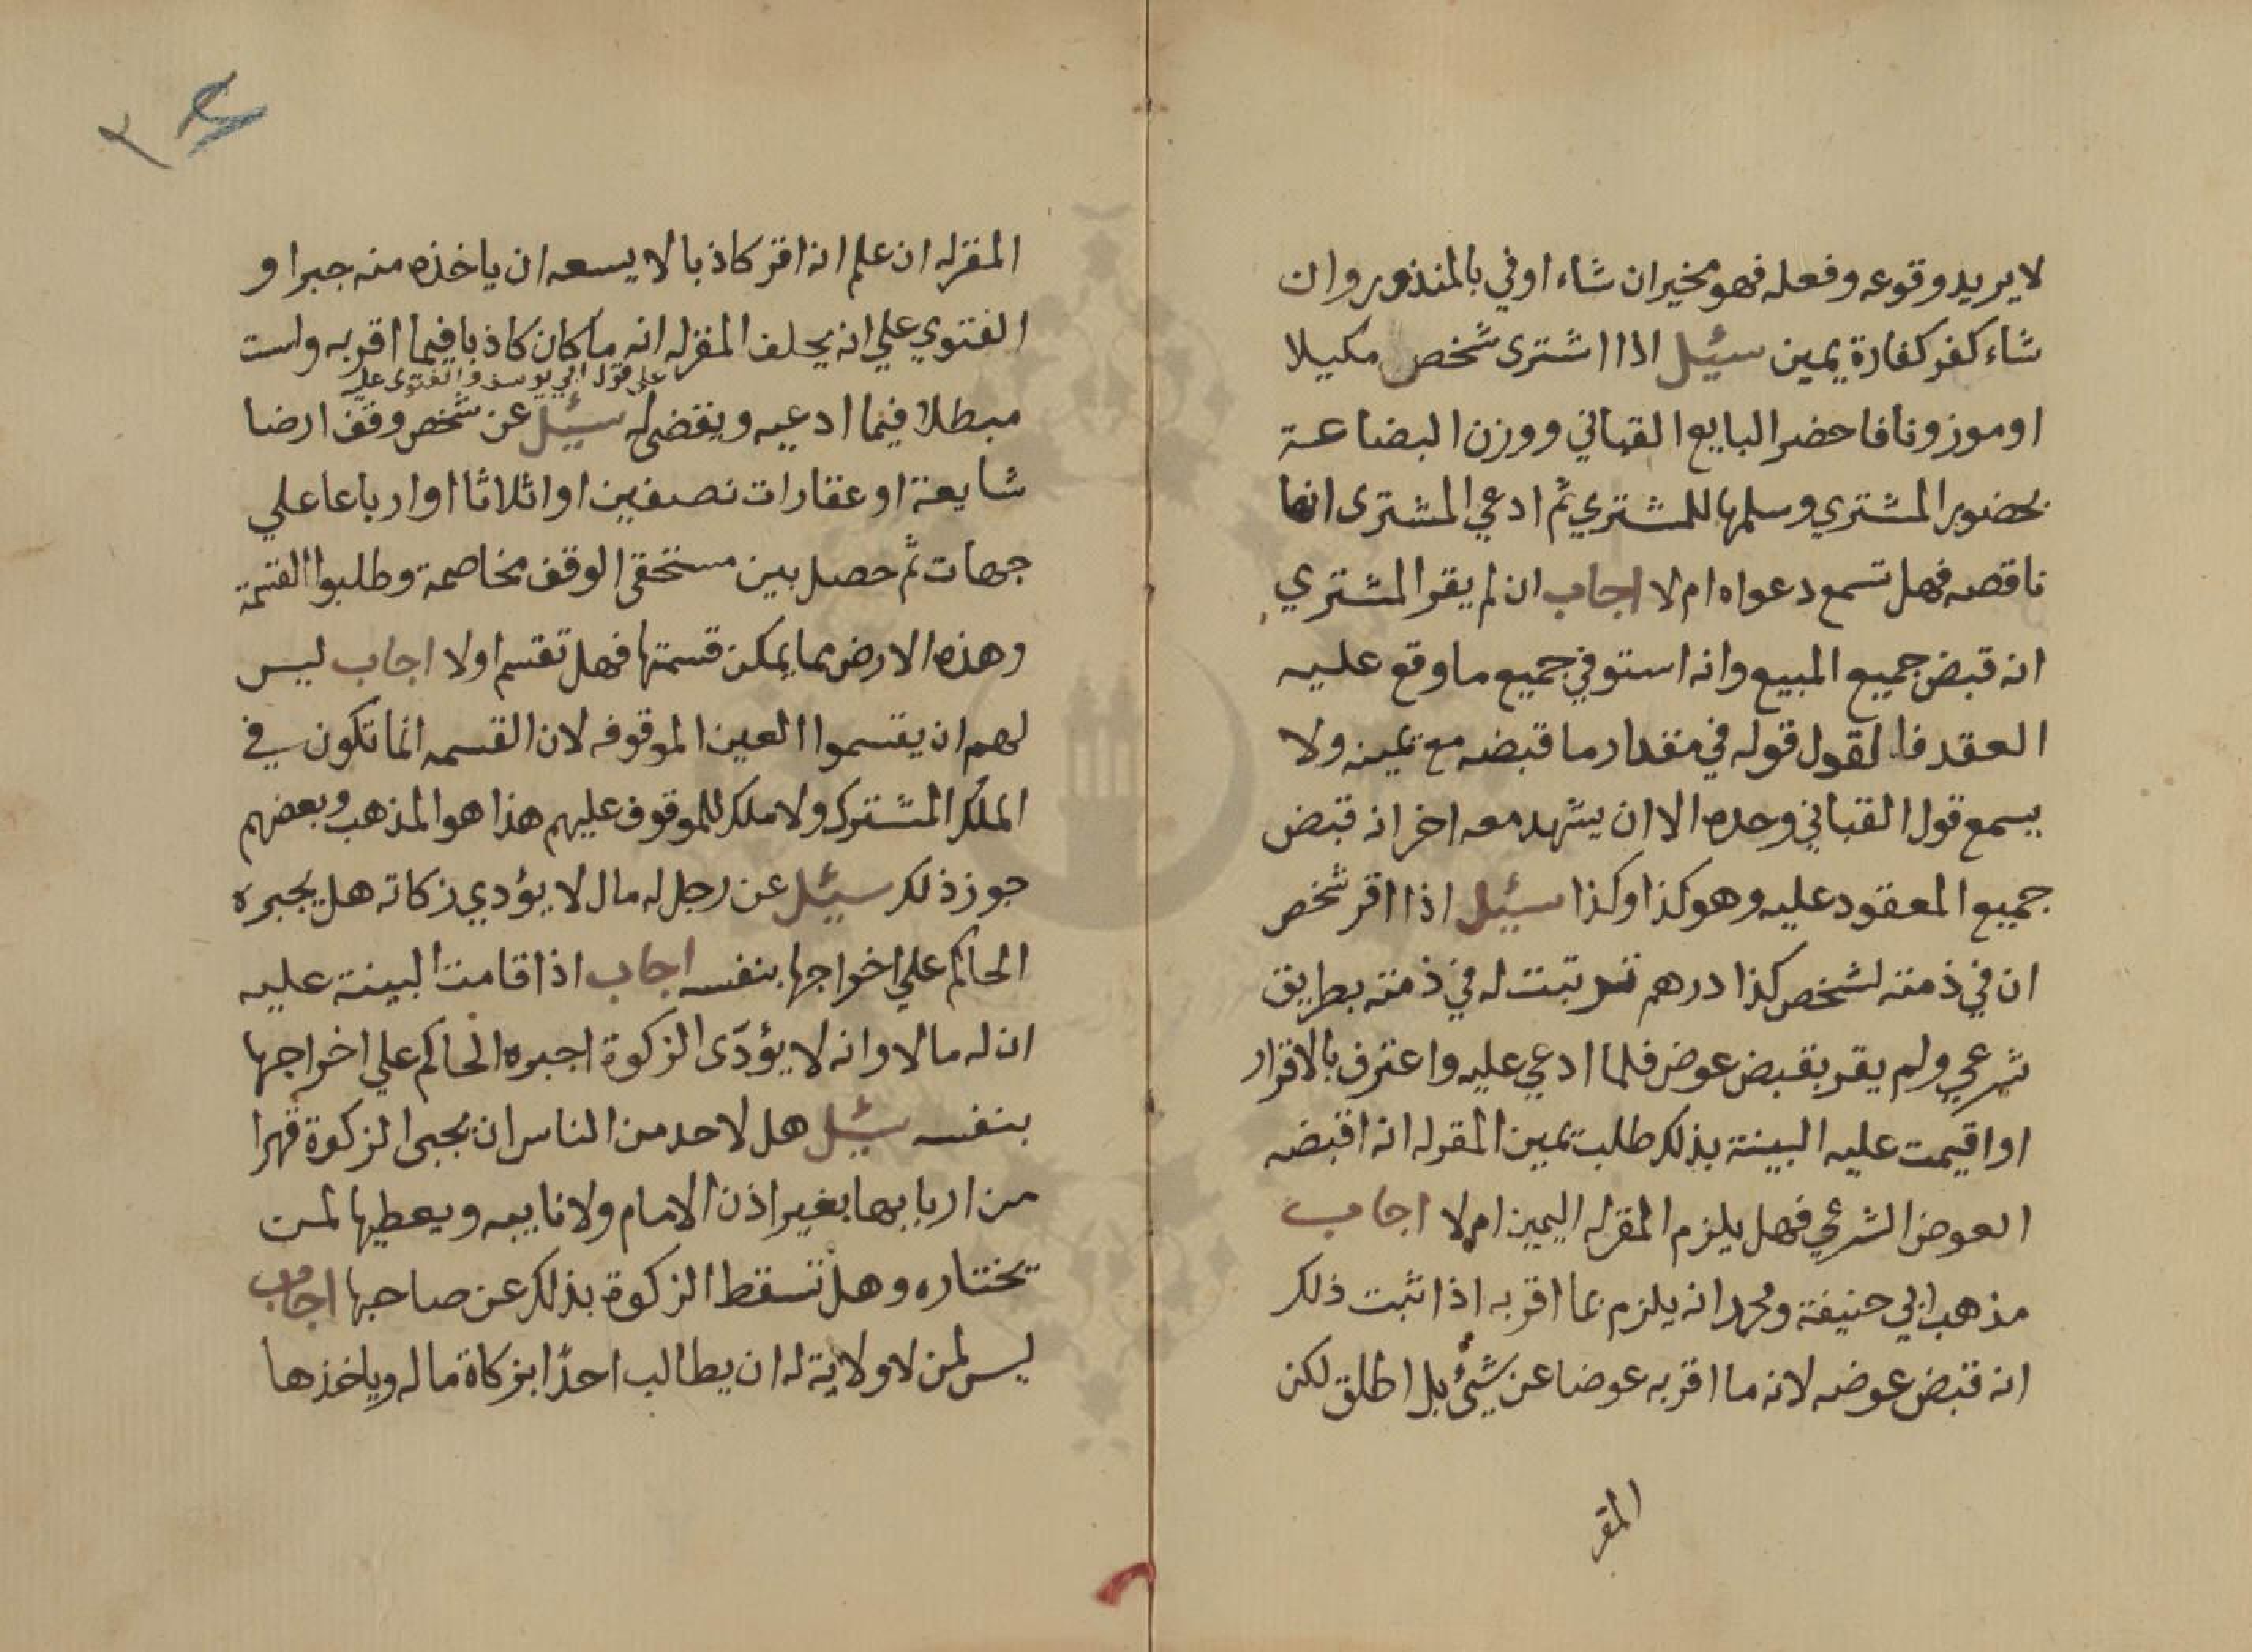 لا يريد وقوعه وفعله فهو مخير ان شاء اوفي بالمنذور وان
شاء كفر كفارة يمين سئيل اذا اشترى شخص مكيلا
او موزونا فاحضر البايع القباني ووزن البضاعة
بحضور المشتري وسلمها للمشتري ثم ادعي المشترى انها
ناقصه فهل تسمع دعواه ام لا اجاب ان لم يقر المشتري
انه قبض جميع المبيع وانه استوفي جميع ما وقع عليه
العقد فالقول قوله في مقدار ما قبضه مع يمينه ولا
يسمع قول القباني وحده الا ان يشهد معه اخر انه قبض
جميع المعقود عليه وهو كذا وكذا سئيل اذا اقر شخص
ان في ذمته لشخص كذا درهم ترتبت له في ذمته بطريق
شرعي ولم يقر بقبض عوض فلما ادعي عليه واعترف بالاقرار
او اقيمت عليه البينة بذلك طلبت يمين المقر له انه اقبضه
العوض الشرعي فهل يلزم المقر له اليمين ام لا اجاب
مذهب ابي حنيفة ومحمد انه يلزم بما اقر به اذا ثبت ذلك
انه قبض عوضه لانه ما اقر به عوضا عن شيئ بل اطلق لكن
المقر
المقر له ان علم انه اقر كاذبا لا يسعه ان ياخذه منه جبرا و
الفتوي علي انه يحلف المقر له انه ما كان كاذبا فيما اقر به ولست
على قول ابي يوسف والفتوى عليه
مبطلا فيما ادعيه ويقضى له سئيل عن شخص وقف ارضا
شايعة او عقارات نصفين او اثلاثا او ارباعا علي
جهات ثم حصل بين مستحقى الوقف مخاصمة وطلبوا القسمة
وهذه الارض مما يمكن قسمتها فهل تقسم او لا اجاب ليس
لهم ان يقتسموا العين الموقوفه لان القسمه انما تكون في
الملك المشترك ولا ملك للموقوف عليهم هذا هو المذهب وبعضهم
جوز ذلك سئيل عن رجل له مال لا يؤدي زكاته هل يجبره
الحاكم علي اخراجها بنفسه اجاب اذا قامت البينة عليه
ان له مالا وانه لا يؤدّى الزكوة اجبره الحاكم علي اخراجها
بنفسه سئيل هل لاحد من الناس ان يجبى الزكوة قهرا
من اربابها بغير اذن الامام ولا نايبه ويعطيها لمن
يختاره وهل تسقط الزكوة بذلك عن صاحبها اجاب
ليس لمن لا ولاية له ان يطالب احدًا بزكاة ماله وياخذها